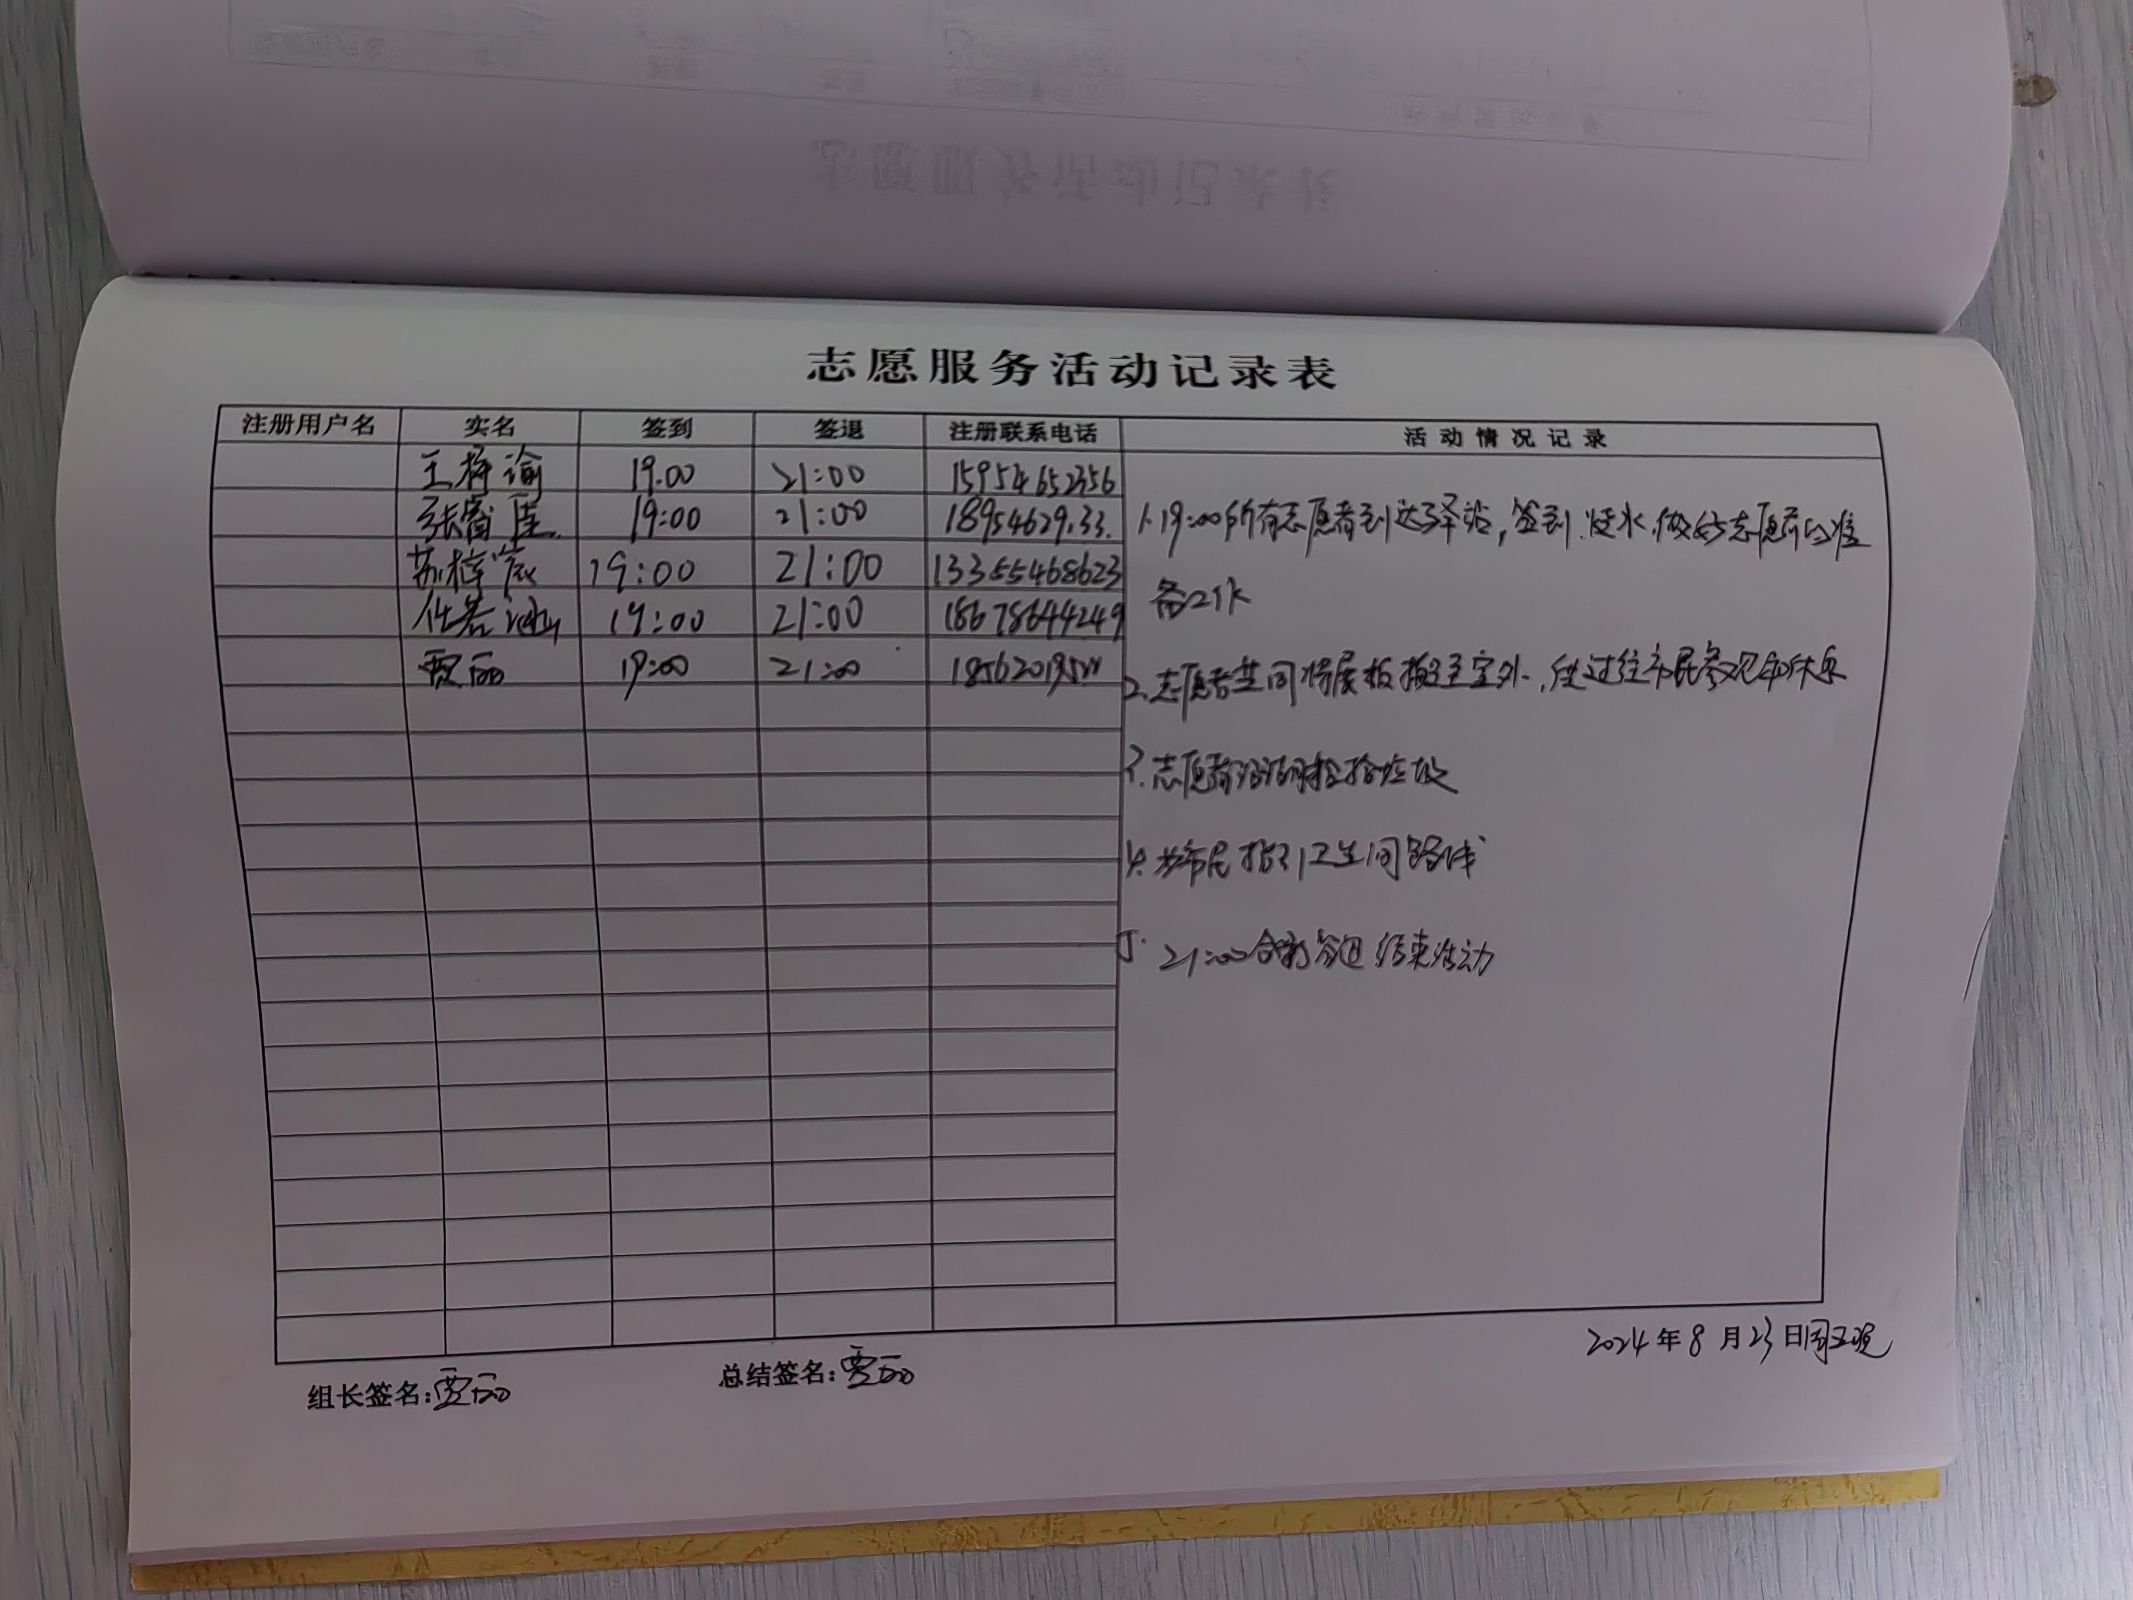 志愿服务活动记录表
注册用户名 实名 签到 签退 注册联系电话 活动情况记录
王梓谕 19.00 21:00 15954652356
张 19:00 21:00 18954629133.
苏梓宸 19:00 21:00 13355468623
任若 19:00 21:00 18678644249
贾丽 19:00 21:00
1.19:00所有志愿者到达驿站,签到.烧水.做好志愿前的准
备工作
2.志愿者共同将展板搬至室外.,供过往市民参观和休息
3.志愿者沿河捡拾垃圾
4.为市民指引卫生间路线
5. 21:00合影签退 结束活动
2024年8月23日周五晚
组长签名:贾丽
总结签名:贾丽